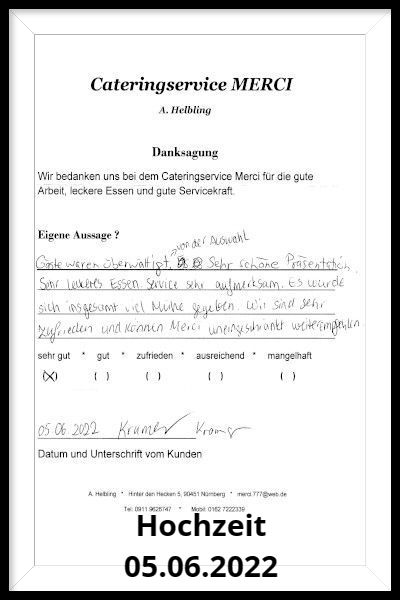 Cateringservice MERCI
A. Helbling
Danksagung
Wir bedanken uns bei dem Cateringservice Merci für die gute
Arbeit, leckere Essen und gute Servicekraft.
Eigene Aussage ?
von der Auswahl
Gäste waren überwältigt, Sehr schöne Präsentation.
Sehr leckeres Essen. Service sehr aufmerksam. Es wurde
sich insgesamt viel Mühe gegeben. Wir sind sehr
zufrieden und können Merci uneingeschränkt weiterempfehlen
sehr gut * gut * zufrieden * ausreichend * mangelhaft
(X) ( ) ( ) ( ) ( )
05.06.2022 Kramer Kramer
Datum und Unterschrift vom Kunden
A. Helbling * Hinter den Hecken 5, 90451 Nürnberg * merci.777@web.de
Tel: 0911 9626747 * Mobil: 0162 7222339
Hochzeit
05.06.2022